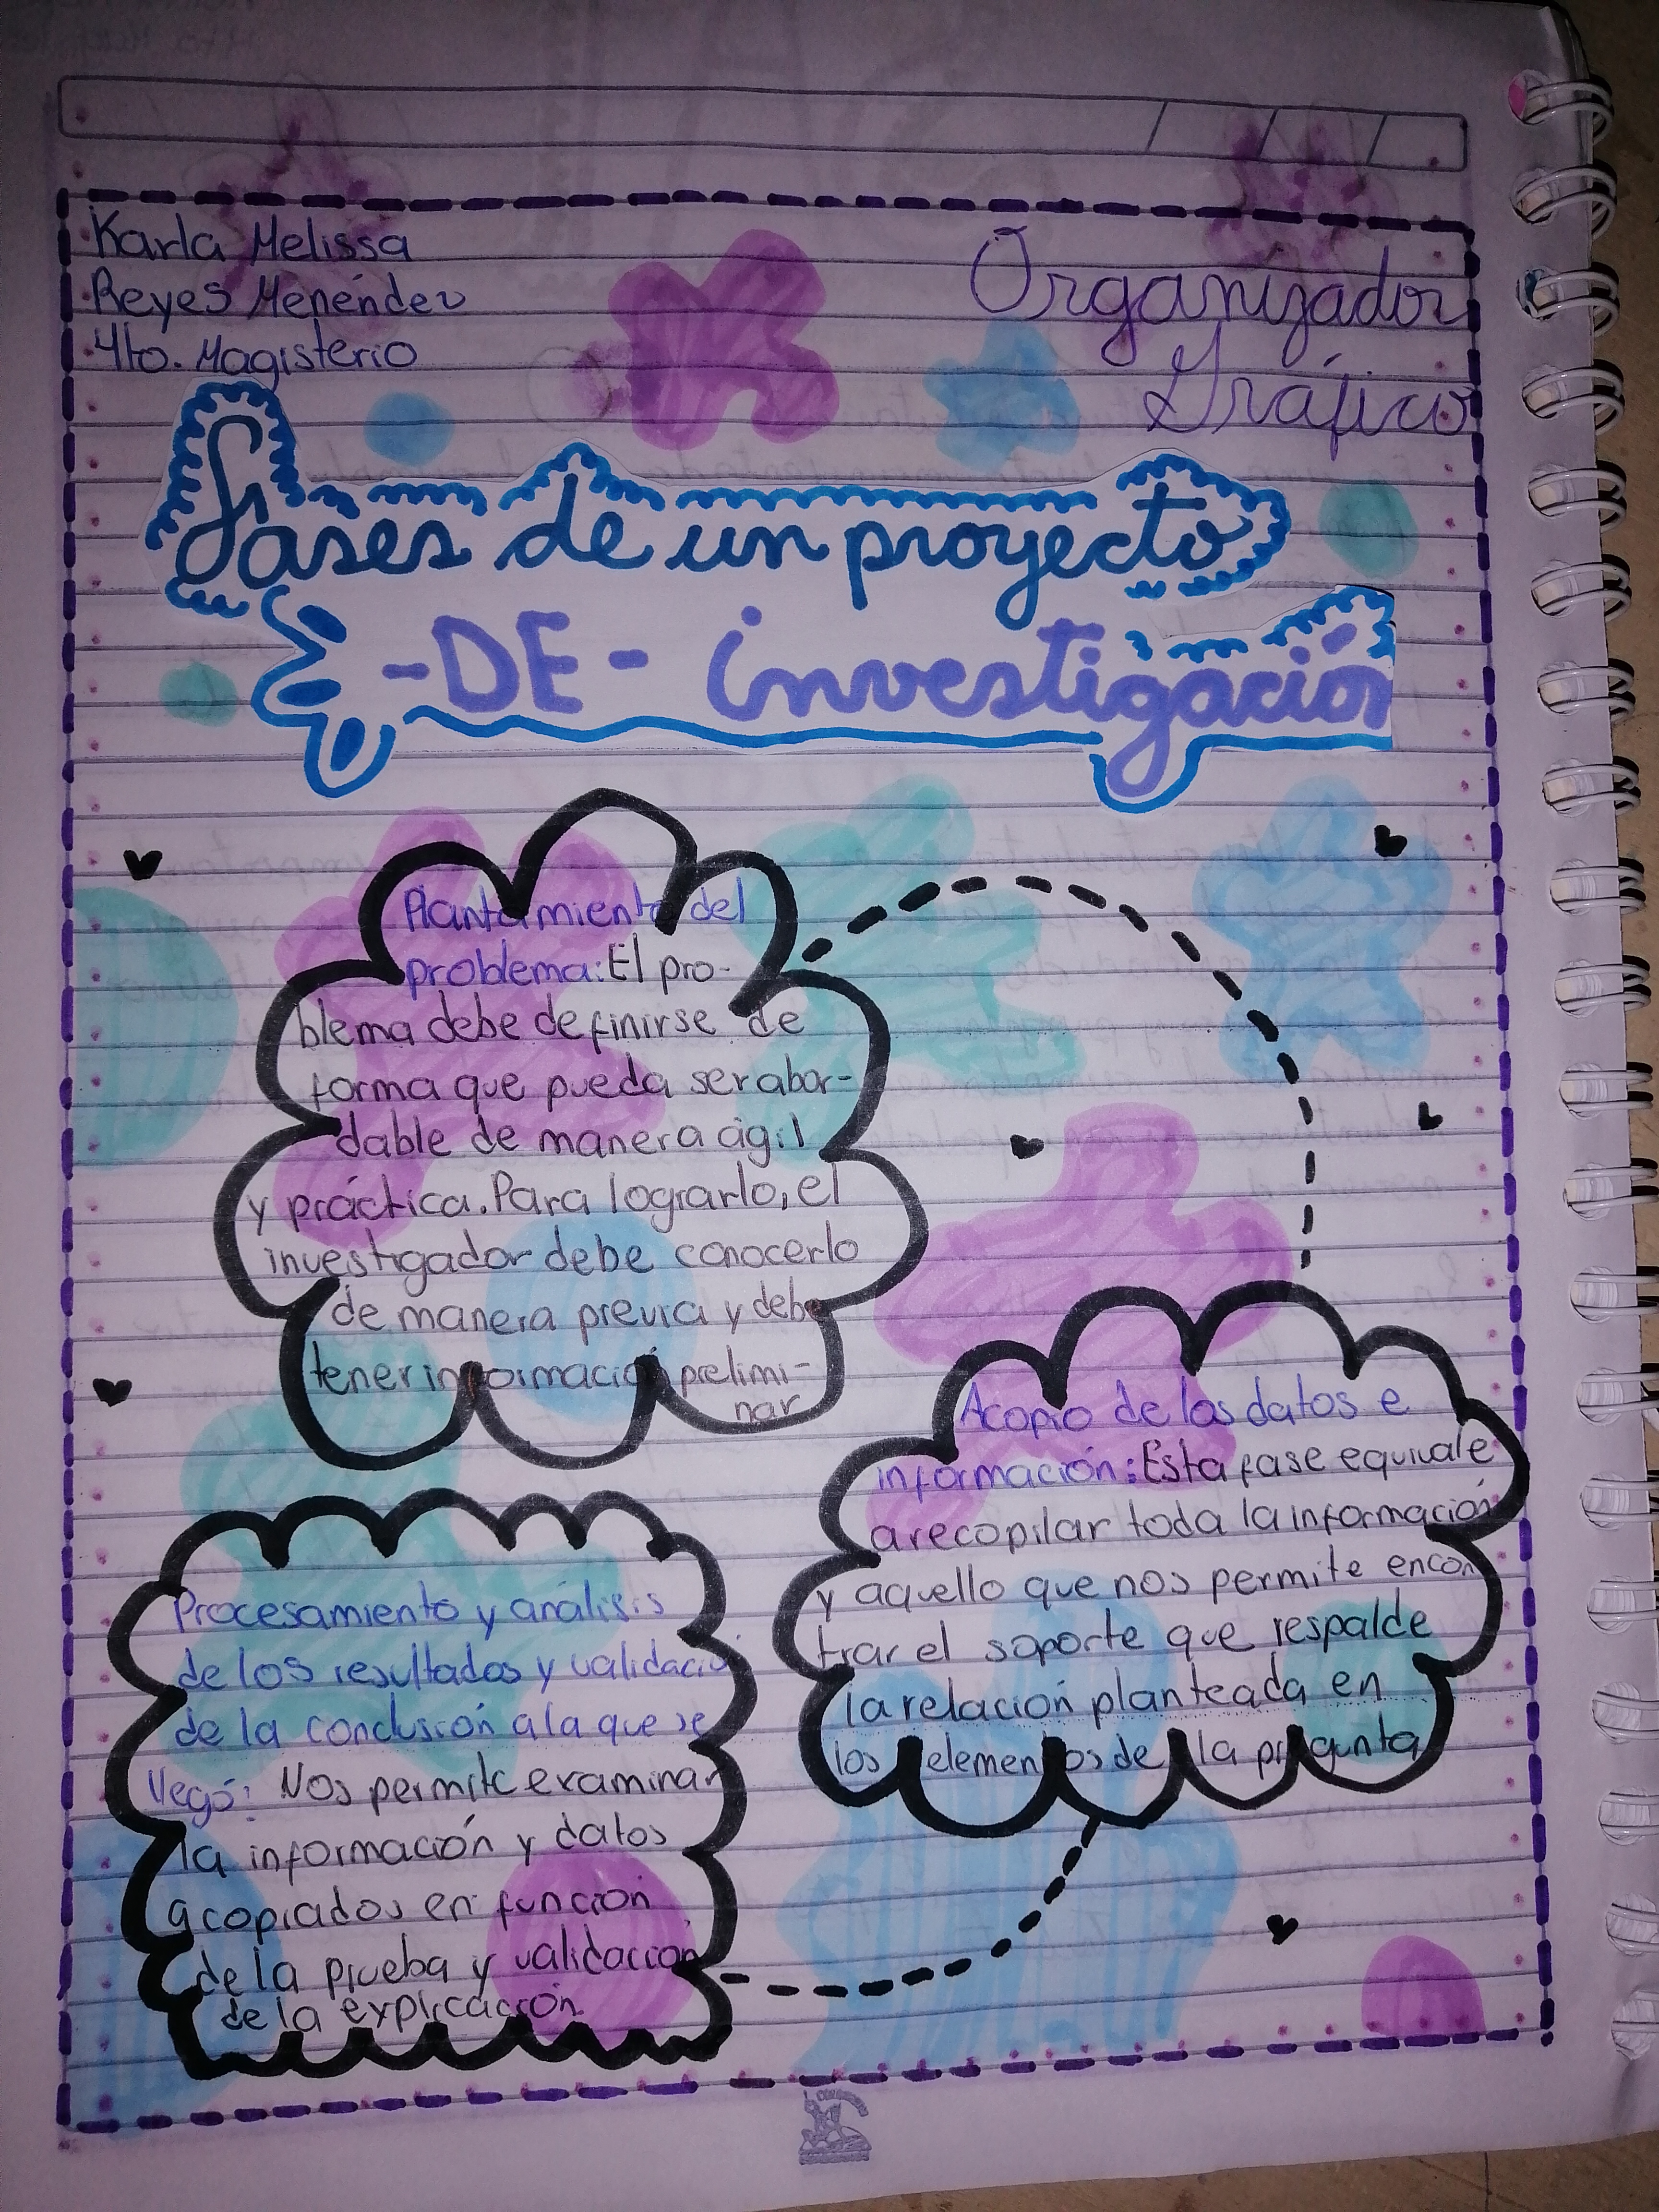 Karla Melissa
Reyes Menéndez
4to. Magisterio
Organizador
Gráfico
fases de un proyecto
-DE- investigación
Plantamiento del
problema: El pro-
blema debe definirse de
forma que pueda ser abor-
dable de manera ágil
y práctica. Para lograrlo, el
investigador debe conocerlo
de manera previa y debe
tener información prelimi-
nar
Acopio de los datos e
información: Esta fase equivale
a recopilar toda la información
y aquello que nos permite encon
trar el soporte que respalde
la relación planteada en
los elementos de la pregunta
Procesamiento y análisis
de los resultados y validació
de la conclusión a la que se
llegó: Nos permite examinar
la información y datos
acopiados en función
de la prueba y validación
de la explicación